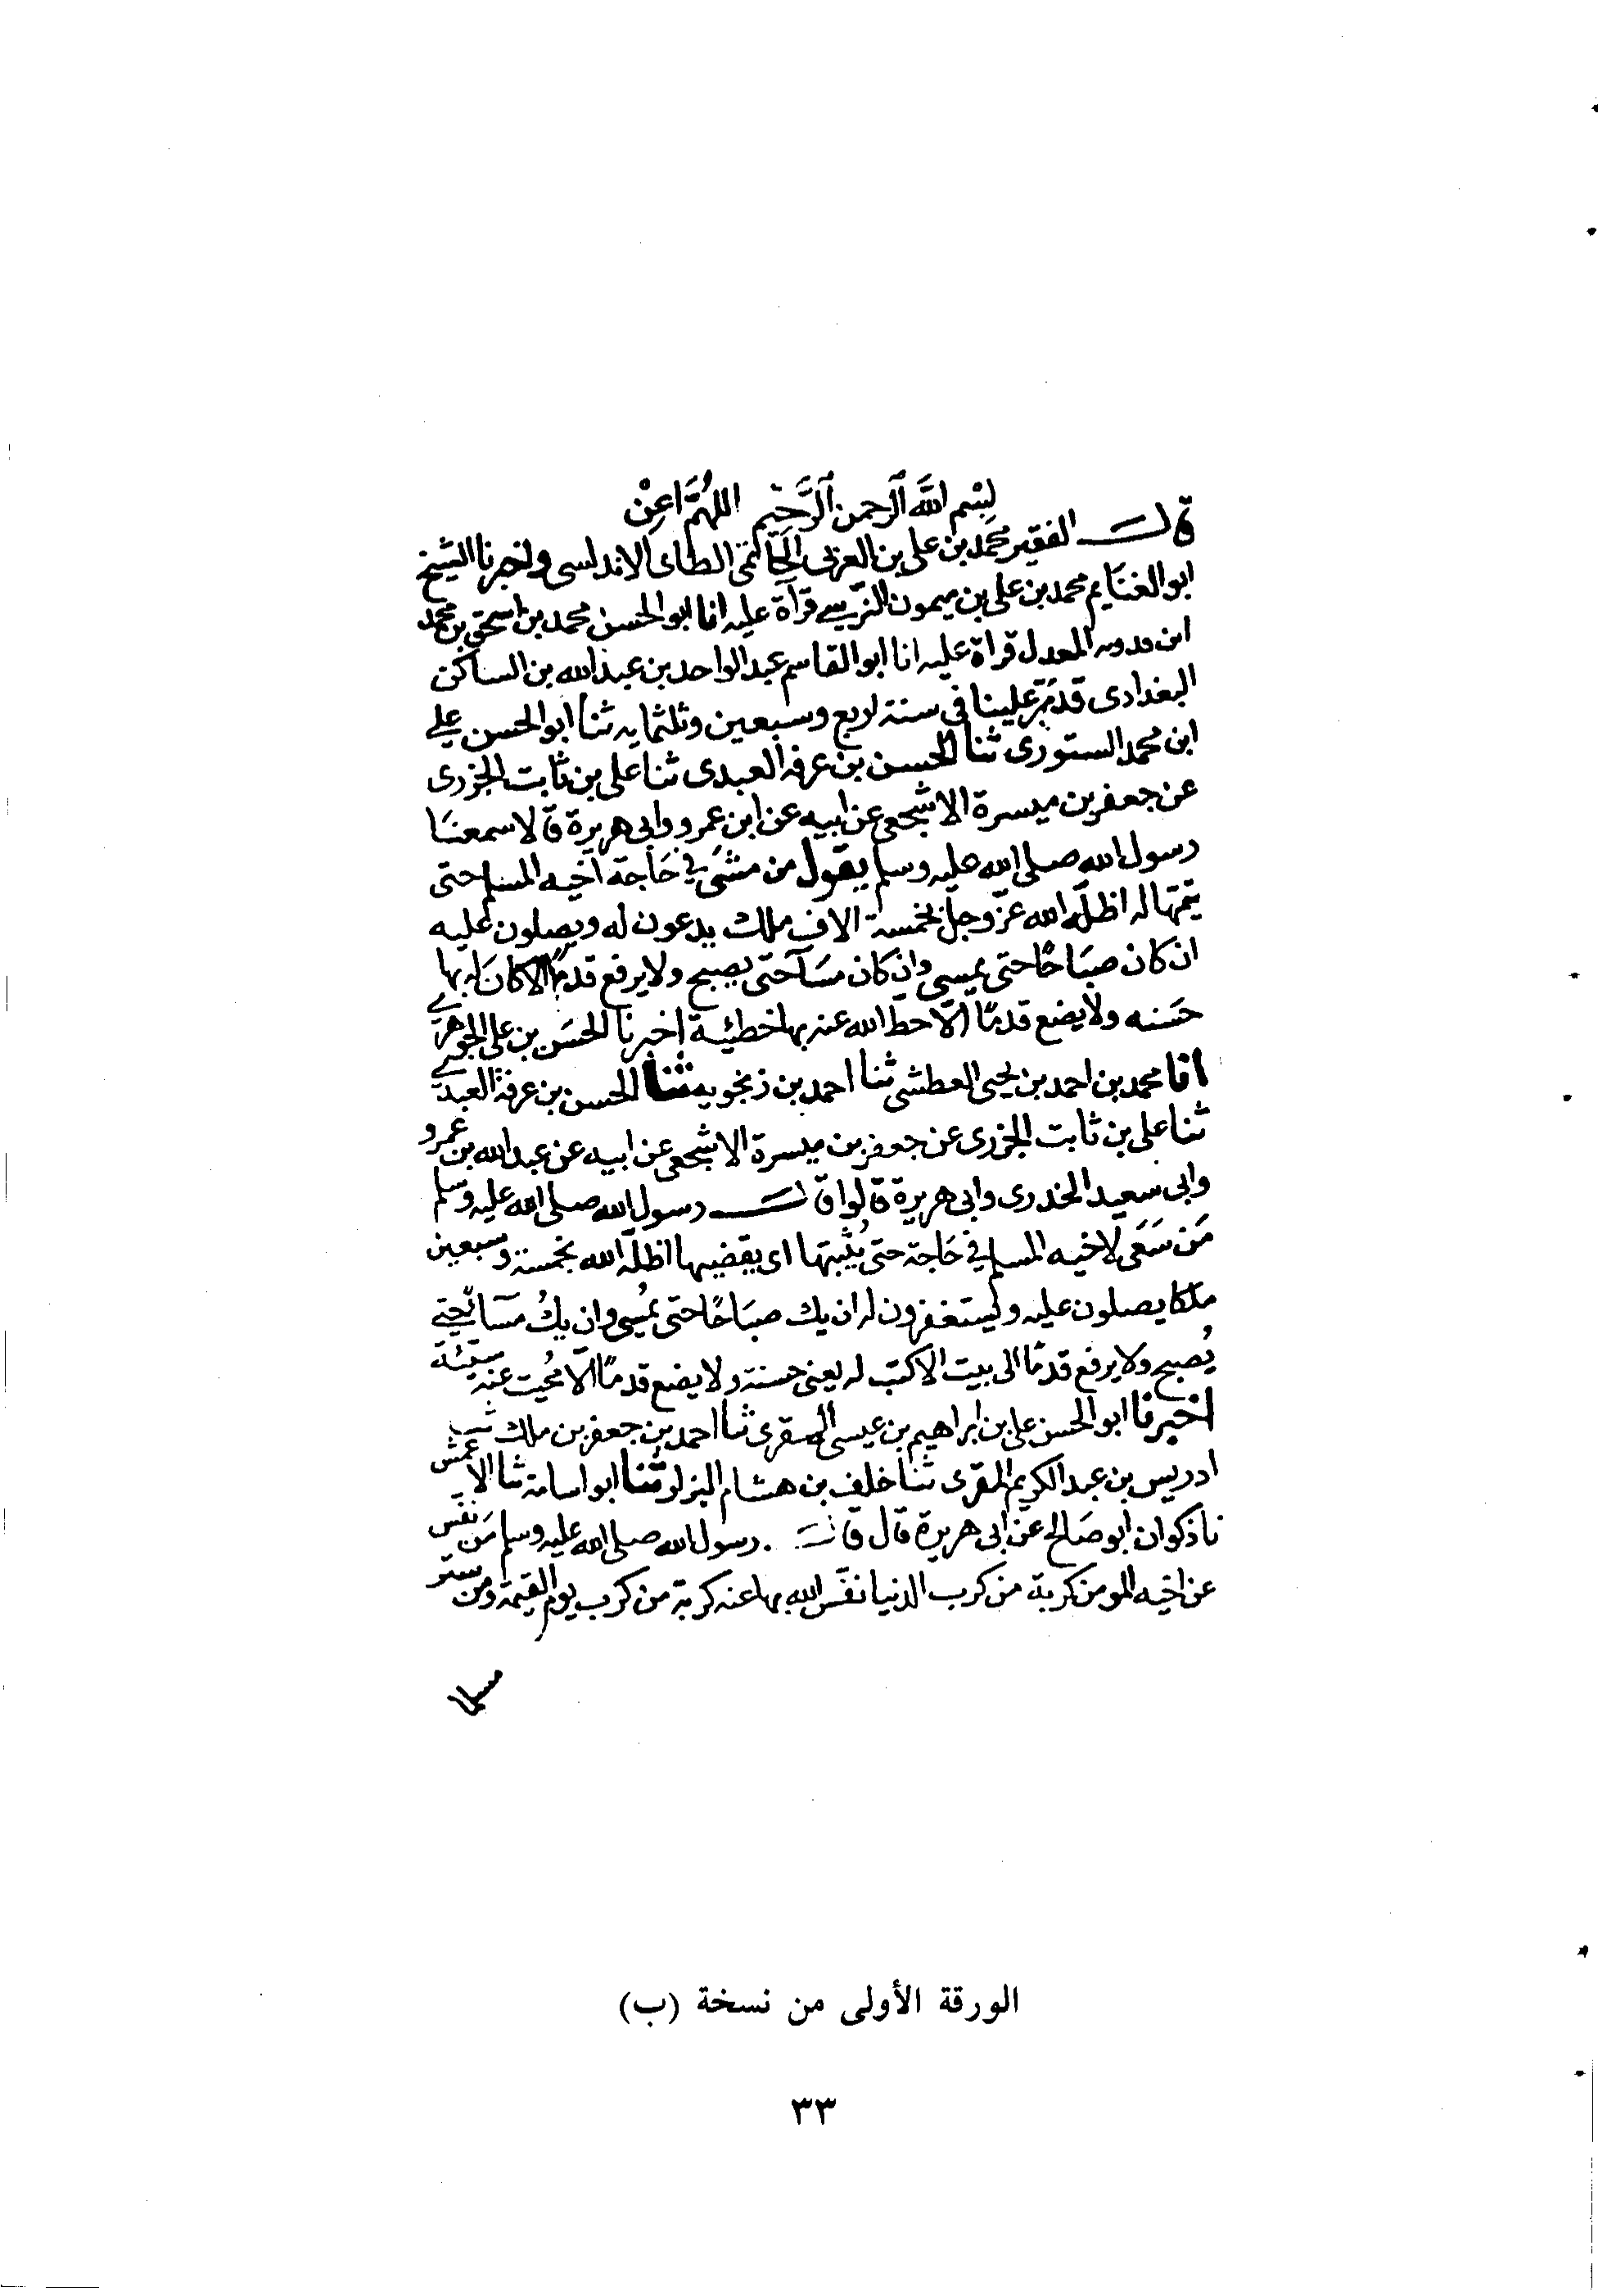 بِسْمِ اللَّهِ الرَّحمن الرَّحِيم اللهُمَّ اَعِنْ
قال الفقير محمد بن علي بن العربي الحاتمي الطاى الاندلسى واخبرنا الشيخ
ابو الغنايم محمد بن على بن ميمون النرسي قرآة عليه انا ابو الحسن محمد بن اسحق بن محمد
ابن فدويه المعدل قراة عليه انا ابو القاسم عبد الواحد بن عبد الله بن الساكن
البغدادى قدم علينا فى سنة اربع وسبعين وثلثمايه ثنا ابو الحسن علي
ابن محمد الستورى ثنا الحسن بن عرفه العبدى ثنا على بن ثابت الجزرى
عن جعفر بن ميسرة الاشجعى عن ابيه عن ابن عمرو وابى هريرة قالا سمعنا
رسول الله صلى الله عليه وسلم يقول من مشَى في حَاجة اخيه المسلم حتى
يتمها له اظلَّه الله عزّ وجل بخمسة الاف ملك يدعون له ويصلون عليه
ان كان صبَاحًا حتى يمسى وان كان مسَآ حتى يصبح ولا يرفع قدمًا الا كان له بها
حسَنه ولا يضع قدمًا الّا حط الله عنه بها خطيئة اخبرنا الحسَن بن على الجوهري
انا محمد بن احمد بن يحيى العطشى ثنا احمد بن زنجويه ثنا الحسن بن عرفة العبدي
ثنا على بن ثابت الجزرى عن جعفر بن ميسرة الاشجعى عن ابيه عن عبد الله بن عمرو
وابى سعيد الخدرى وابى هريرة قالوا قال رسول الله صلى الله عليه وسلم
مَن سَعَى لاخيه المسلم في حَاجة حتى يُثبتها اى يقضيها اظلّه الله بخمسة وسبعين
ملكا يصلون عليه ويستغفرون له ان يك صبَاحًا حتى يُمسى وان يكُ مسَآ حتى
يُصبح ولا يرفع قدمًا الى بيت الا كتب له يعنى حسنة ولا يضع قدمًا الّا مُحيت عنه سيّئة
اخبرنا ابو الحسن على بن ابراهيم بن عيسى المقرى ثنا احمد بن جعفر بن ملك ثنا
ادريس بن عبد الكريم المقرى ثنا خلف بن هشام البزار ثنا ابو اسامة ثنا الاعمش
نا ذكوان ابو صَالح عن ابى هريرة قال قال رسول الله صلى الله عليه وسلم مَن نفّس
عن اخيه المومن كربة من كرب الدنيا نفّس الله بها عنه كربة من كرب يوم القيمة ومن ستر
مسلما
الورقة الأولى من نسخة (ب)
٣٣